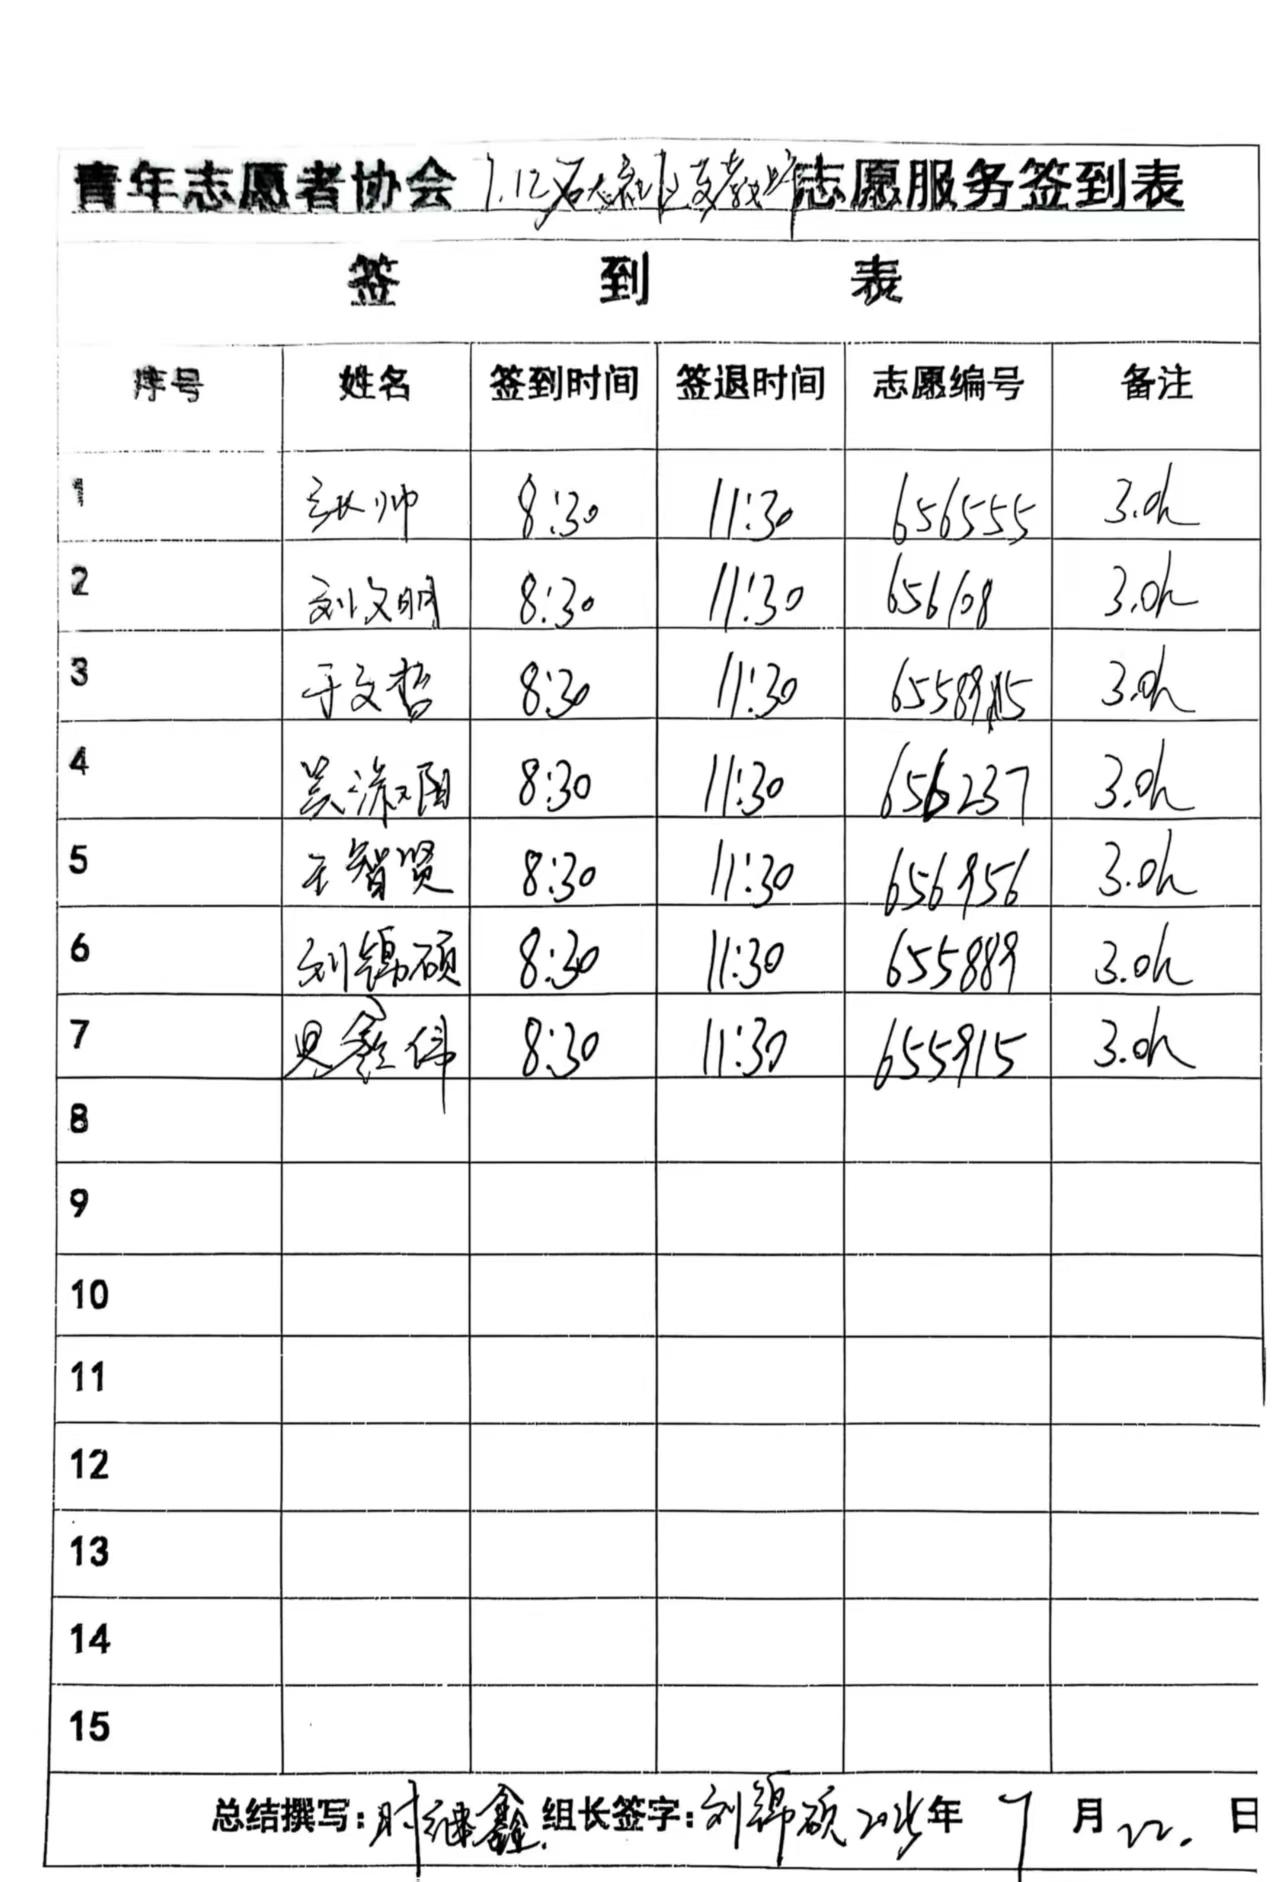 青年志愿者协会7.12石大社区支教 志愿服务签到表
签 到 表
序号 姓名 签到时间 签退时间 志愿编号 备注
1 张帅 8:30 11:30 656555 3.0h
2 刘文明 8:30 11:30 656108 3.0h
3 于文哲 8:30 11:30 3.0h
4 吴 阳 8:30 11:30 656237 3.0h
5 王智贤 8:30 11:30 656956 3.0h
6 刘锦硕 8:30 11:30 655889 3.0h
7 鑫伟 8:30 11:30 655915 3.0h
8
9
10
11
12
13
14
15
总结撰写:时继鑫 组长签字:刘锦硕 2025年 7 月 22. 日